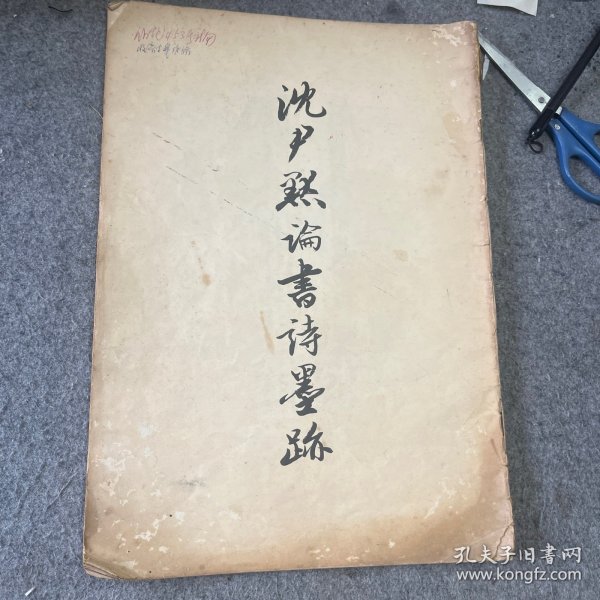 沈尹默論書詩墨跡
孔夫子旧書网
www.kongfz.com